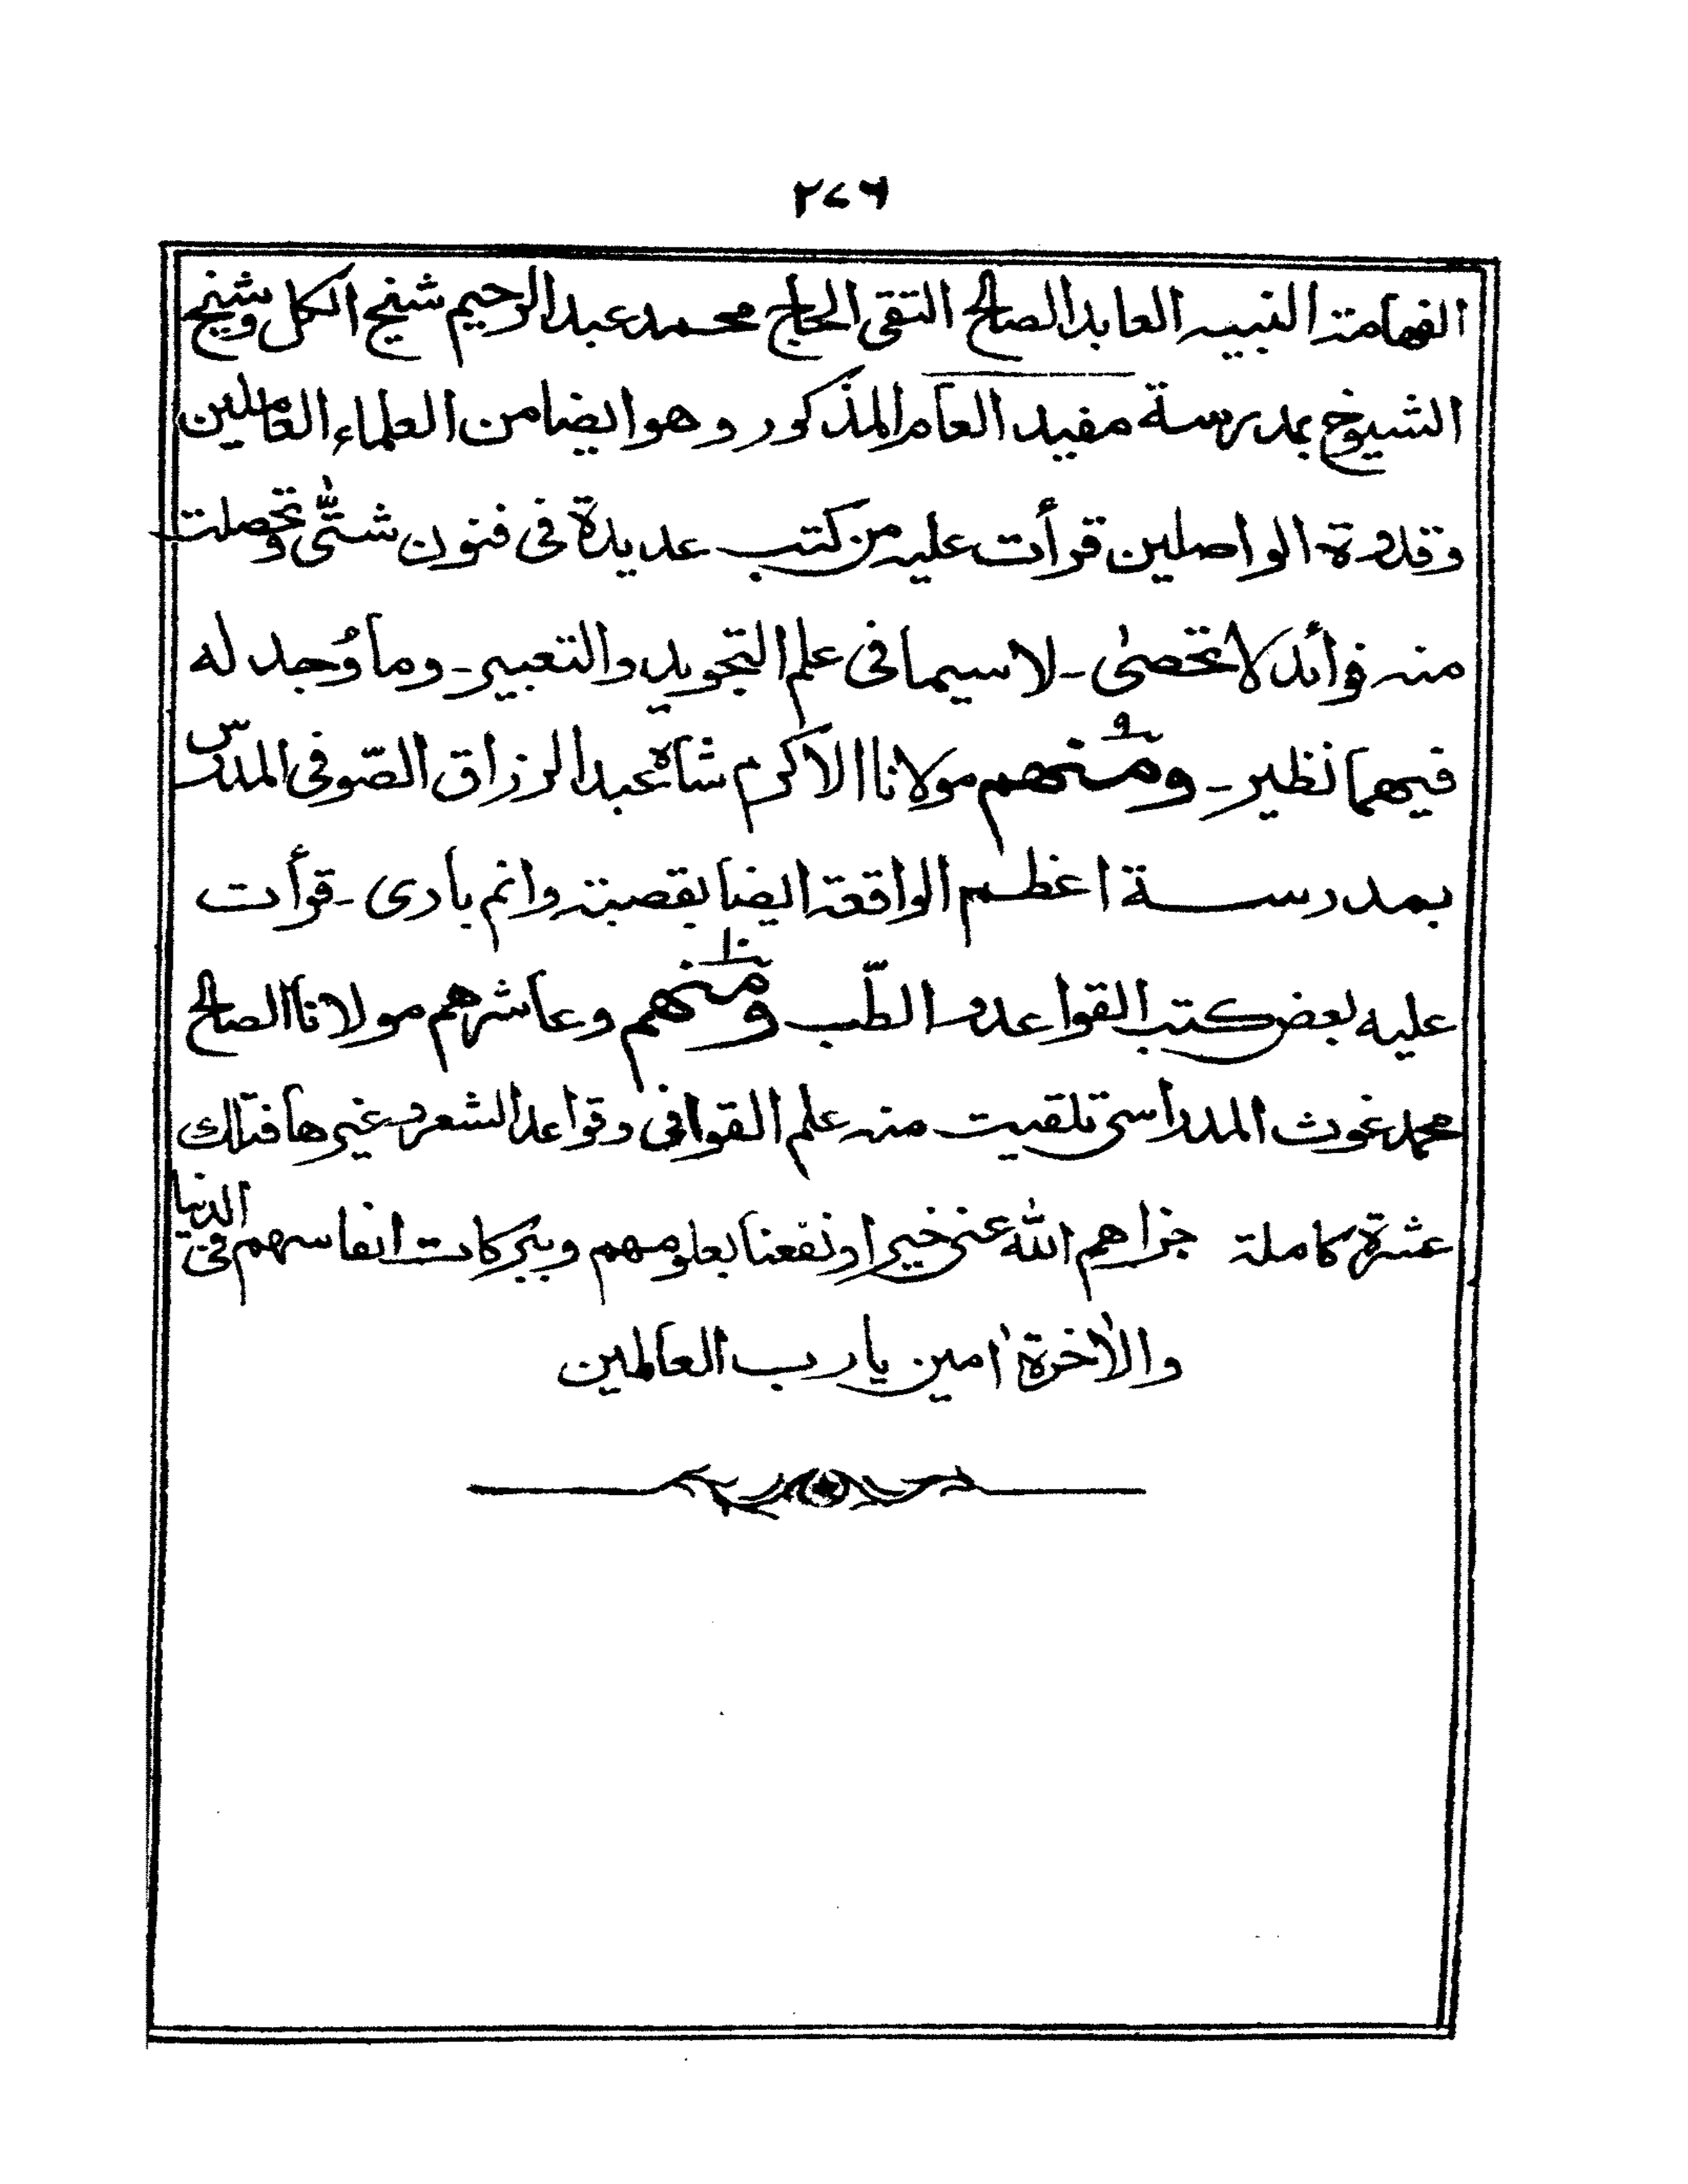 ٢٧٦
الفهامة النبيه العابد الصالح التقى الحاج محمد عبد الرحيم شيخ الكل وشيخ
الشيوخ بمدرسة مفيد العام المذكور وهو ايضا من العلماء العاملين
وقدوة الواصلين قرأت عليه من كتب عديدة فى فنون شتّٰى وتحصلت
منه فوائد لا تحصٰى ـ لا سيما فى علم التجويد والتعبير ـ وما وُجد له
فيهما نظير ـ ومنهم ٩ مولانا الاكرم شاه عبد الرزاق الصّوفى المدرس
بمدرسة اعظم الواقعة ايضا بقصبة وانم بادى ـ قرأت
عليه بعض كتب القواعد والطّب ومنهم ١٠ وعاشرهم مولانا الصالح
محمد غوث المدراسى تلقيت منه علم القوافى وقواعد الشعر وغيرها فتلك
عشرة كاملة جزاهم الله عنى خيرا ونفعنا بعلومهم وببركات انفاسهم فى الدنيا
والاٰخرة اٰمين يا رب العالمين